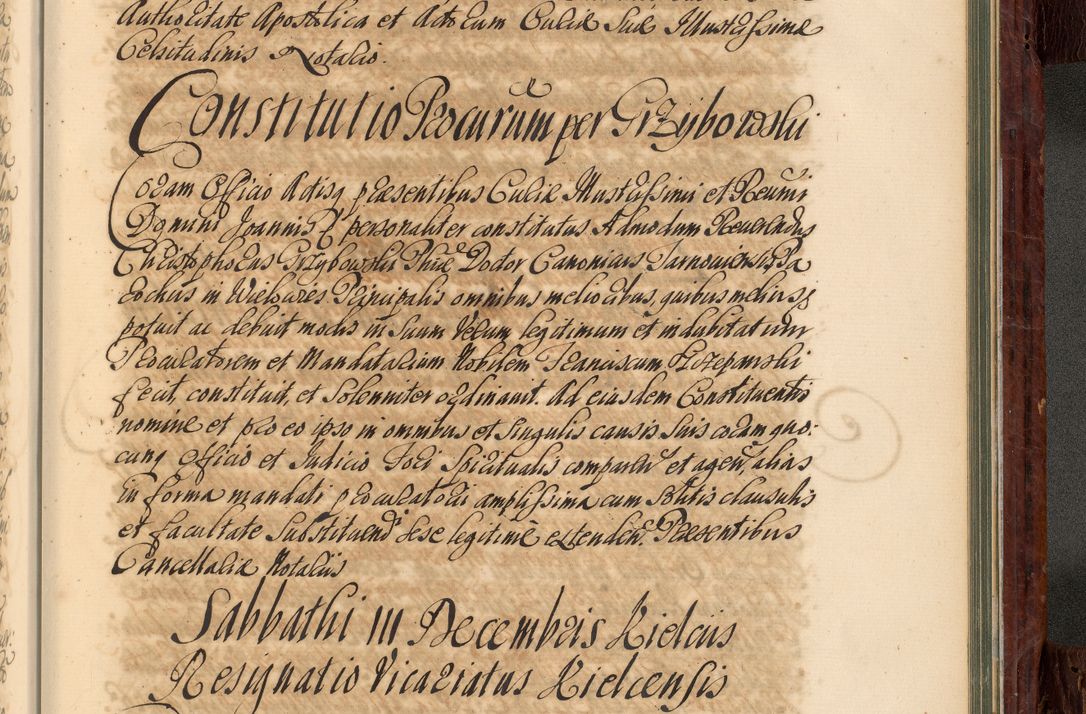 Authoritate Apostolica et Actorum Curiæ Suæ Illustrissimæ
Celsitudinis Notario.
Constitutio Procurum per Grzybowski
Coram Officio Actisq præsentibus Curiæ Illustrissimi et Reumi
Domini Joannis personaliter constitutus Admodum Reverendus
Christophorus Grzybowski Phiæ Doctor Canonicus Tarnoviensis Pa
rochus in Principalis omnibus melioribus, quibus melius
potuit ac debuit modis in Suum Verum legitimum et indubitatum
Procuratorem et Mandatarium Nobilem Franciscum Szczepanski
fecit, constituit, et Solenniter ordinavit. Ad eiusdem Constituentis
nomine et pro eo ipso in omnibus et Singulis causis Suis coram quo:
cunq Officio et Iudicio Fori Spiritualis comparen et agen, alias
in forma mandati procuratorii amplissima cum Solitis clausulis
et facultate Substituendi Sese legitimè extenden. Præsentibus
Cancellariæ Notariis
Sabbathi in Decembris Kielciis
Resignatio Vicariatus Kielcensis